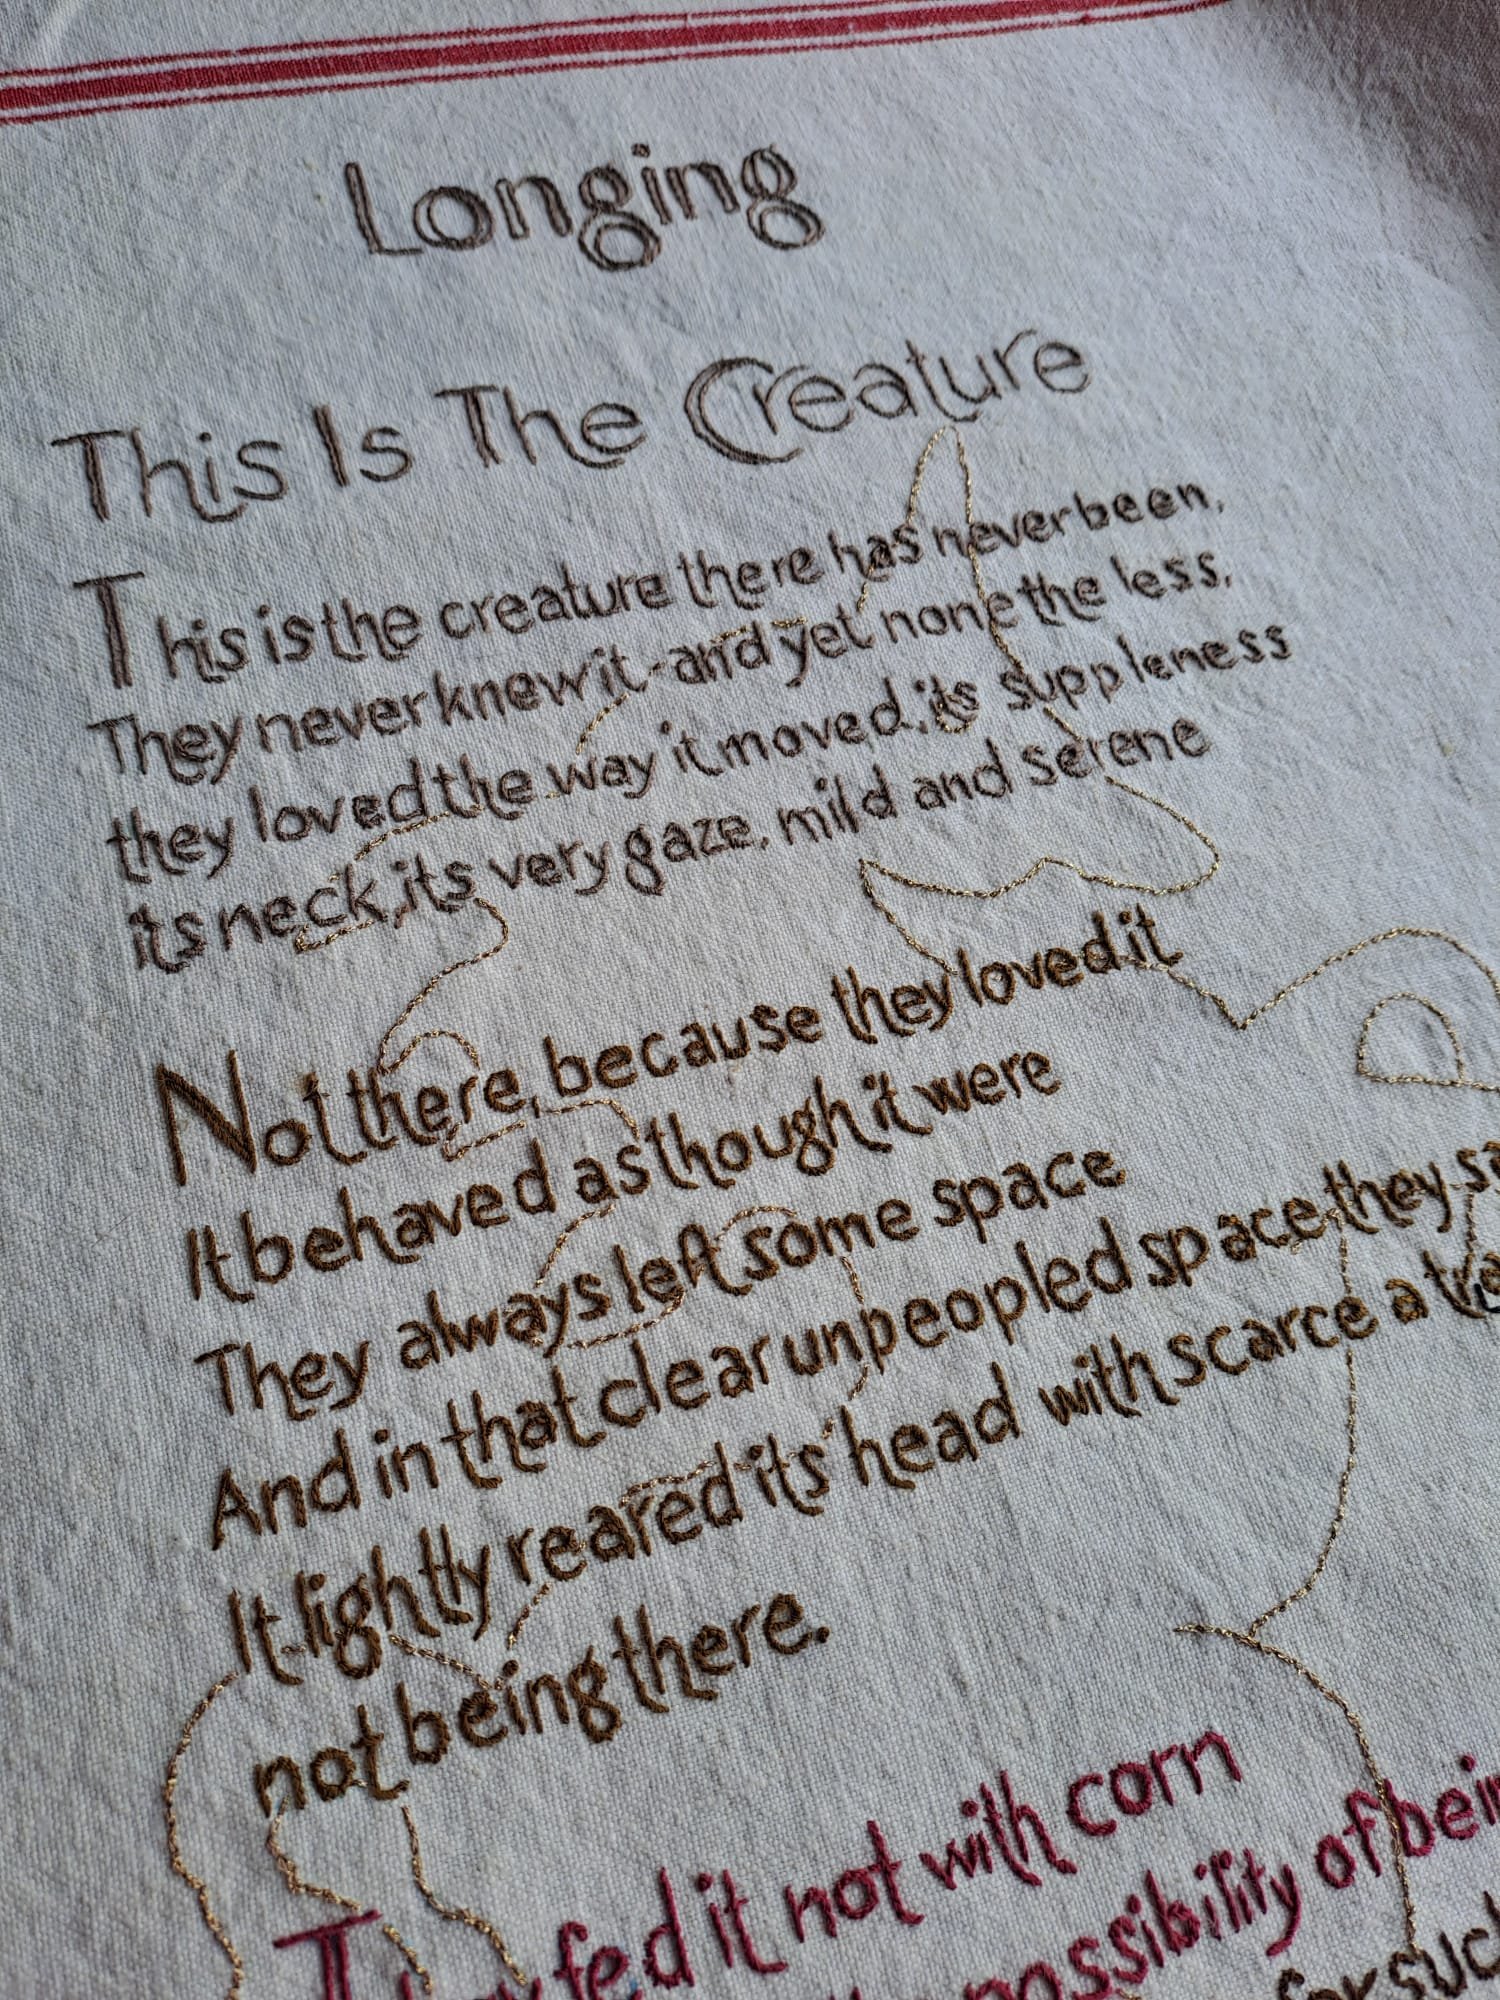 Longing
This Is The Creature
This is the creature there has never been,
They never knew it - and yet none the less,
they loved the way it moved, its suppleness
its neck, its very gaze, mild and serene
Not there, because they loved it
It behaved as though it were
They always left some space
And in that clear unpeopled space they
It lightly reared its' head with scarce a
not being there.
They fed it not with corn
possibility of
for